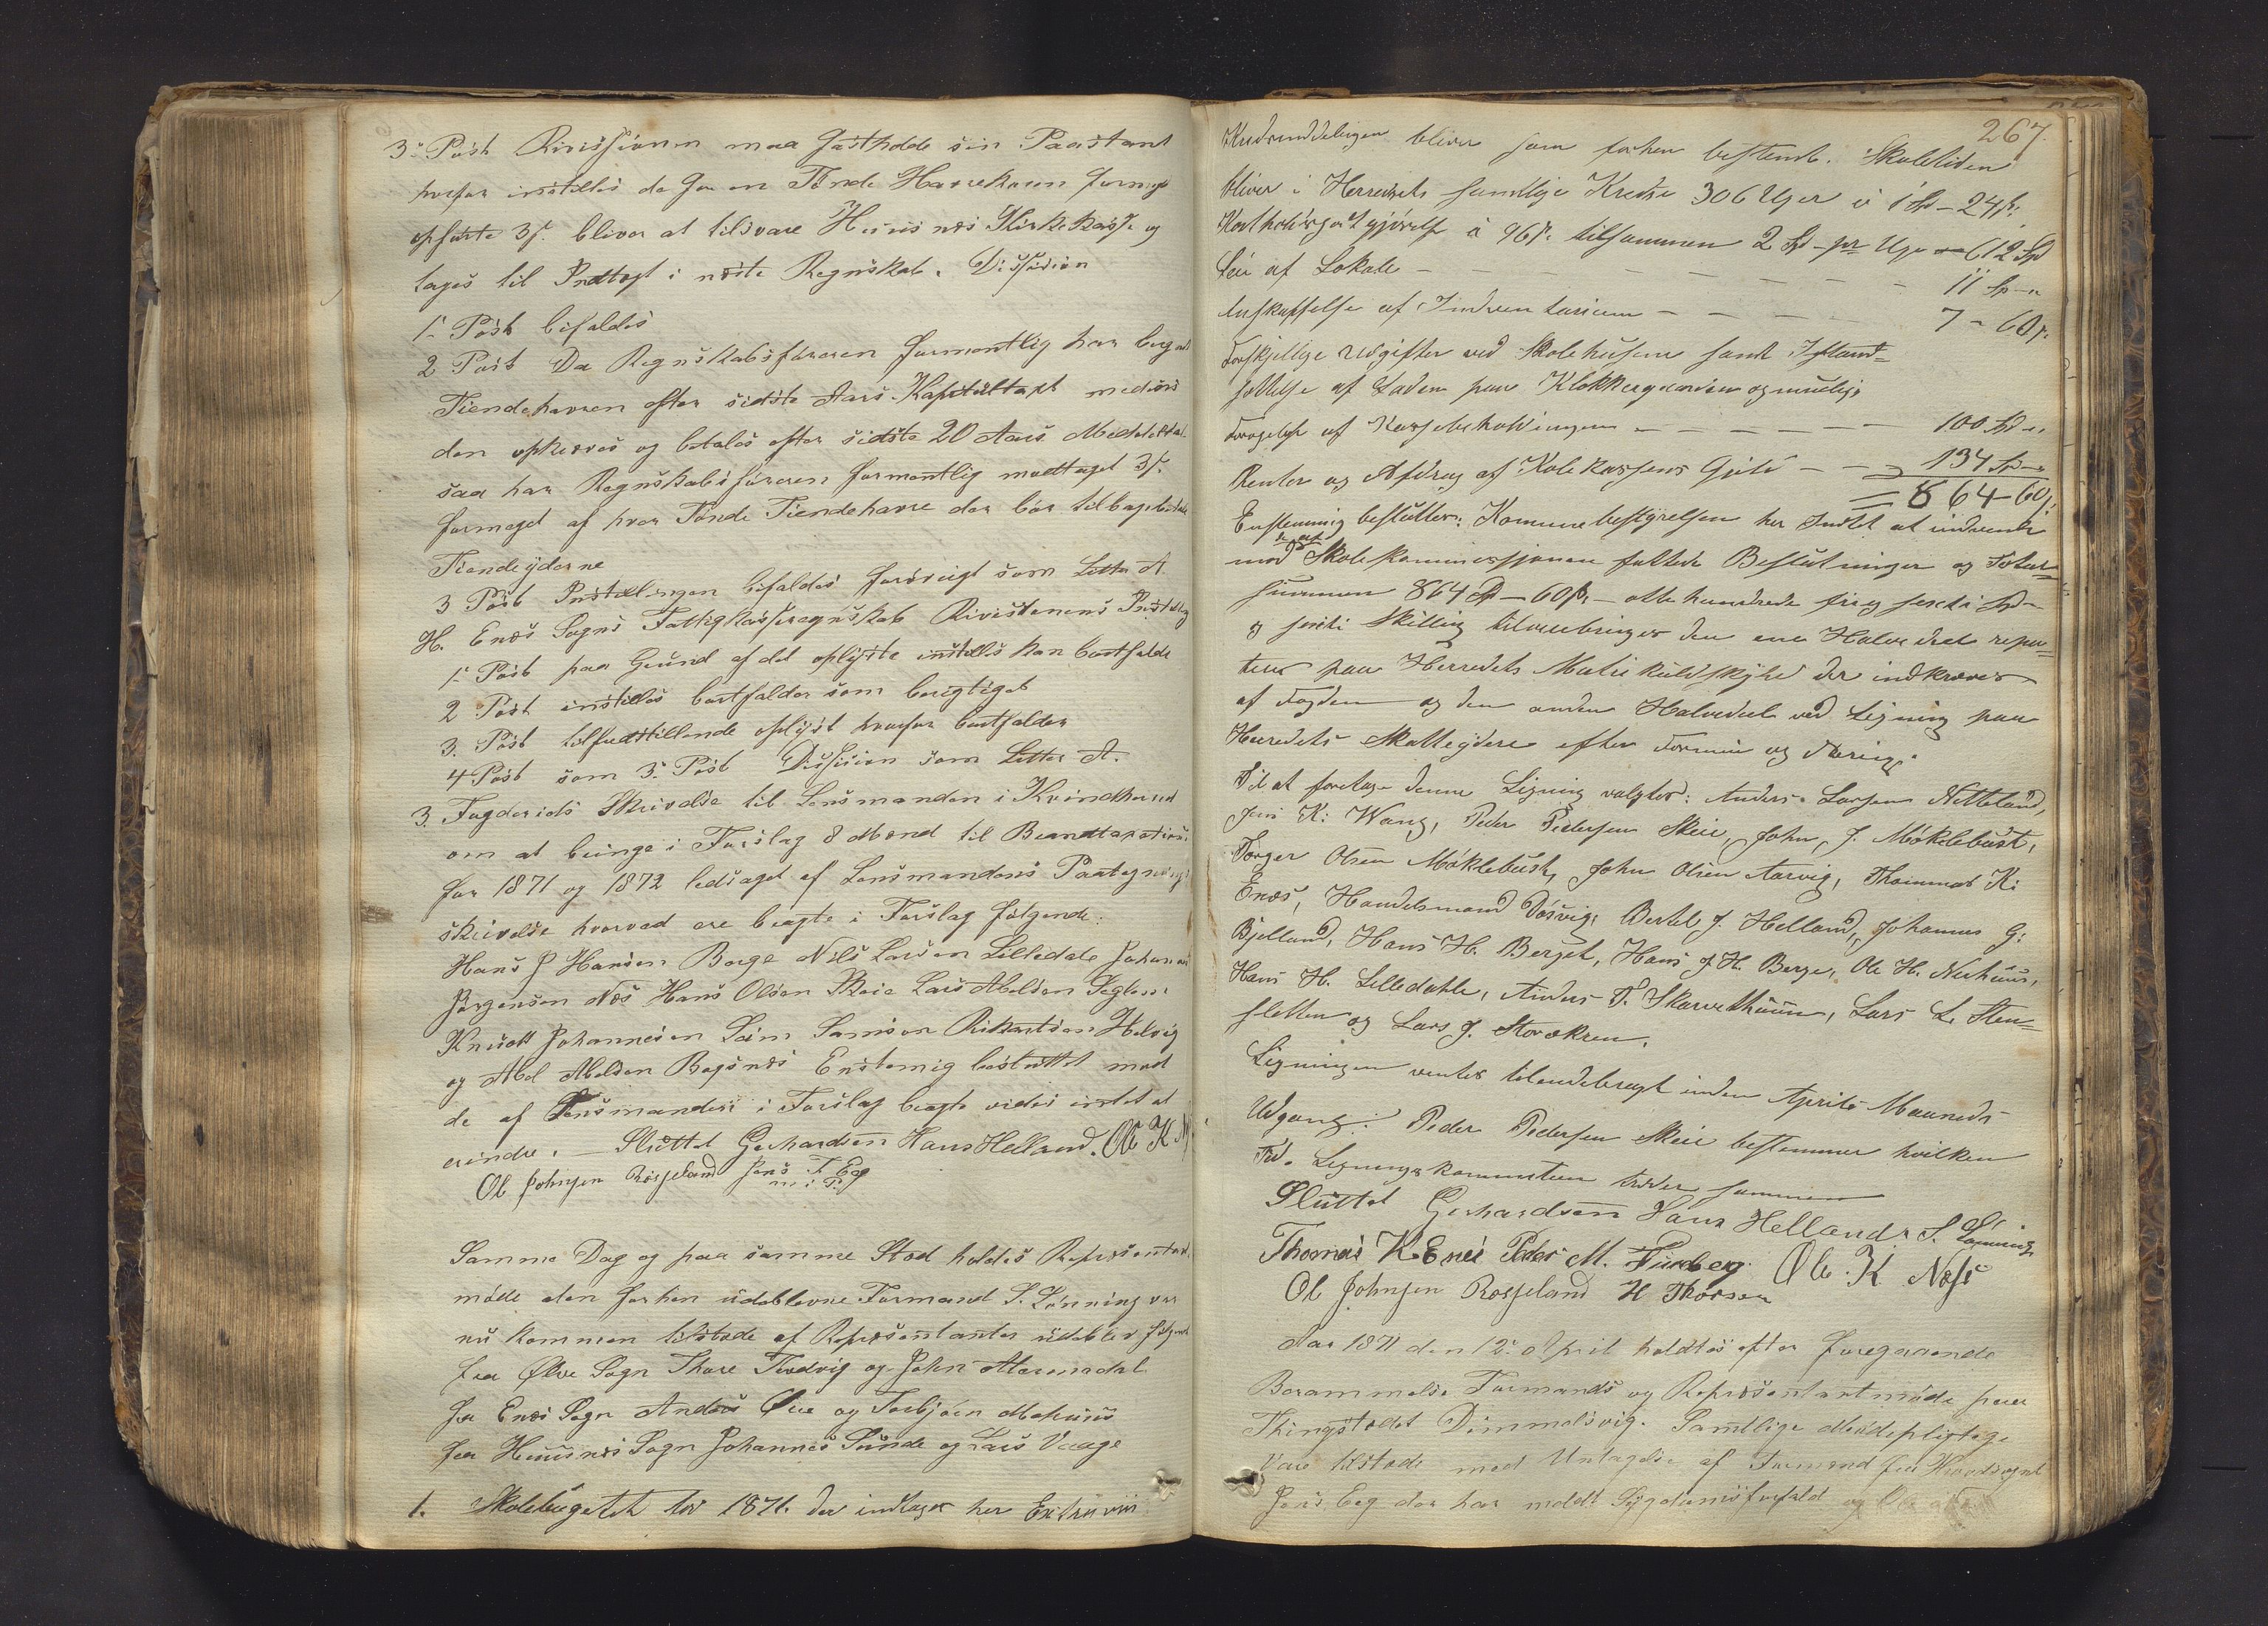 3. Post Rivissionen maa fastholde sin Paastand
hvorfor instilles da for en Tønde Havrekorn formeget
opførte 3ſ. bliver at tilsvare Huusnæs Kirkekasse og
tages til Indtægt i næste Regnskab. Dissision
1. Post bifaldes
2 Post Da Regnskabsføreren formentlig har beregnet
Tiendehavren efter sidste Aars Kapitultaxt medens
den opkræves og betales efter sidste 20 Aars Middeltal
saa har Regnskabsføreren formentlig modtaget 3ſ.
formeget af hver Tønde Tiendehavre der bør tilbagebetales
Tiendeyderne
3 Post Instillingen bifaldes forøvrigt som Letter A
H. Enæs Sogns Fattigkasseregnskab Rivistenens Instilling
1. Post paa Grund af det oplyste instilles kan bortfalde
2 Post instilles bortfalder som berigtiget
3. Post tilfredstillende oplyst hvorfor bortfalder
4 Post som 3. Post Dissision som Letter A.
3. Fogderiets Skrivelse til Lensmanden i Kvindherred
om at bringe i Forslag 8 Mænd til Brandtaxations
for 1871 og 1872 ledsaget af Lensmandens Paategnings
skrivelse hvorved ere bragte i Forslag følgende:
Hans J Hansen Berge Nils Larsen Lilledale Johannes
Jørgensen Næs Hans Olsen Skeie Lars Abelsen Seglem
Knudt Johannesen Sæm Samson Rikardsen Helvig
og Abel Abelsen Bogsnæs Enstemig besluttet mod
de af Lensmanden i Forslag bragte vides intet at
erindre. — Sluttet Gerhardsen Hans Helland. Ole K N
Ol Johnsen Rosseland Jens T. Eeg
m. i P.
Samme Dag og paa samme Sted holdes Repræsentant
møde den forhen udeblevne Formand S. Lønning var
nu kommen tilstede af Repræsentanter udeblev følgende
fra Ølve Sogn Thore Tvedvig og John
fra Enæs Sogn Anders Øie og Torbjørn Mehuus
fra Huusnæs Sogn Johannes Sunde og Lars Vaage
1. Skolebugetet for 1871. der indtages her
267.
Kredsinddelingen bliver som forhen bestemt. Skoletiden
bliver i Herredets samtlige Kredse 306 Uger á 1 Sp - 24ſ.
Kostholdsgodtgjørelse á 96ſ. tilsammen 2 Sp - pr Uge = 612 Sp
Leie af Lokale — — — — — — — 11 Sp - "
Anskaffelse af Indventarium — — — — 7 - 60ſ.
Forskjellige Udgifter ved Skolehusene samt Istand=
settelse af Laden paa Klokkergaarden og muelige
Forøgelse af Karselsholdningen — — — — — 100 Sp - "
Renter og Afdrag af Skolekassens Gjeld — — 134 Sp - "
= 864 - 60ſ.
Enstemmig besluttes: Kommunebestyrelsen har Indtet at indvende
mod de af Skolekommissjonen fattede Beslutninger og Total=
summen 864 Sp - 60ſ. - otte hundrede firog sexti Sp -
og sexti Skilling tilveiebringes den ene Halvedeel repar=
teres paa Herredets Matrikulskyld der indkræves
af Fogden og den anden Halvedeel ved Ligning paa
Herredets Skatteydere efter Formue og Næring.
Til at foretage denne Ligning valgtes: Anders Larsen Netteland,
Jens K: Wang, Peder Pedersen Skeie, John J. Møklebust,
Torger Olsen Møklebust, John Olsen Aarvig, Thommas K:
Enæs, Handelsmand Døsvig, Bertel J. Helland, Johannes G:
Bjelland, Hans H. Berget, Hans J H. Berge, Ole H. Nerhuus,
Hans H. Lilledahle, Anders T. Skarvethuun, Lars L. Sten=
sletten og Lars J. Storækren.
Ligningen ventes tilendebragt inden Aprils Maaneds
Udgang: Peder Pedersen Skeie bestemmer hvilken
Tid. Ligningskommiteen træder sammen
Sluttet Gerhardsen Hans Helland S. Lønning
Thomas K Enæs Peder M. Furberg Ole K Næss
Ol Johnsen Rosseland H Thorsen
Aar 1871 den 12. April holdtes efter foregaaende
Berammelse Formands og Repræsentantmøde paa
Thingstedet Dimmelsvig. Samtlige Mødepligtige
Vare tilstede med Untagelse af Formand fra
Jens Eeg der har meldt Sygdomsforfald og